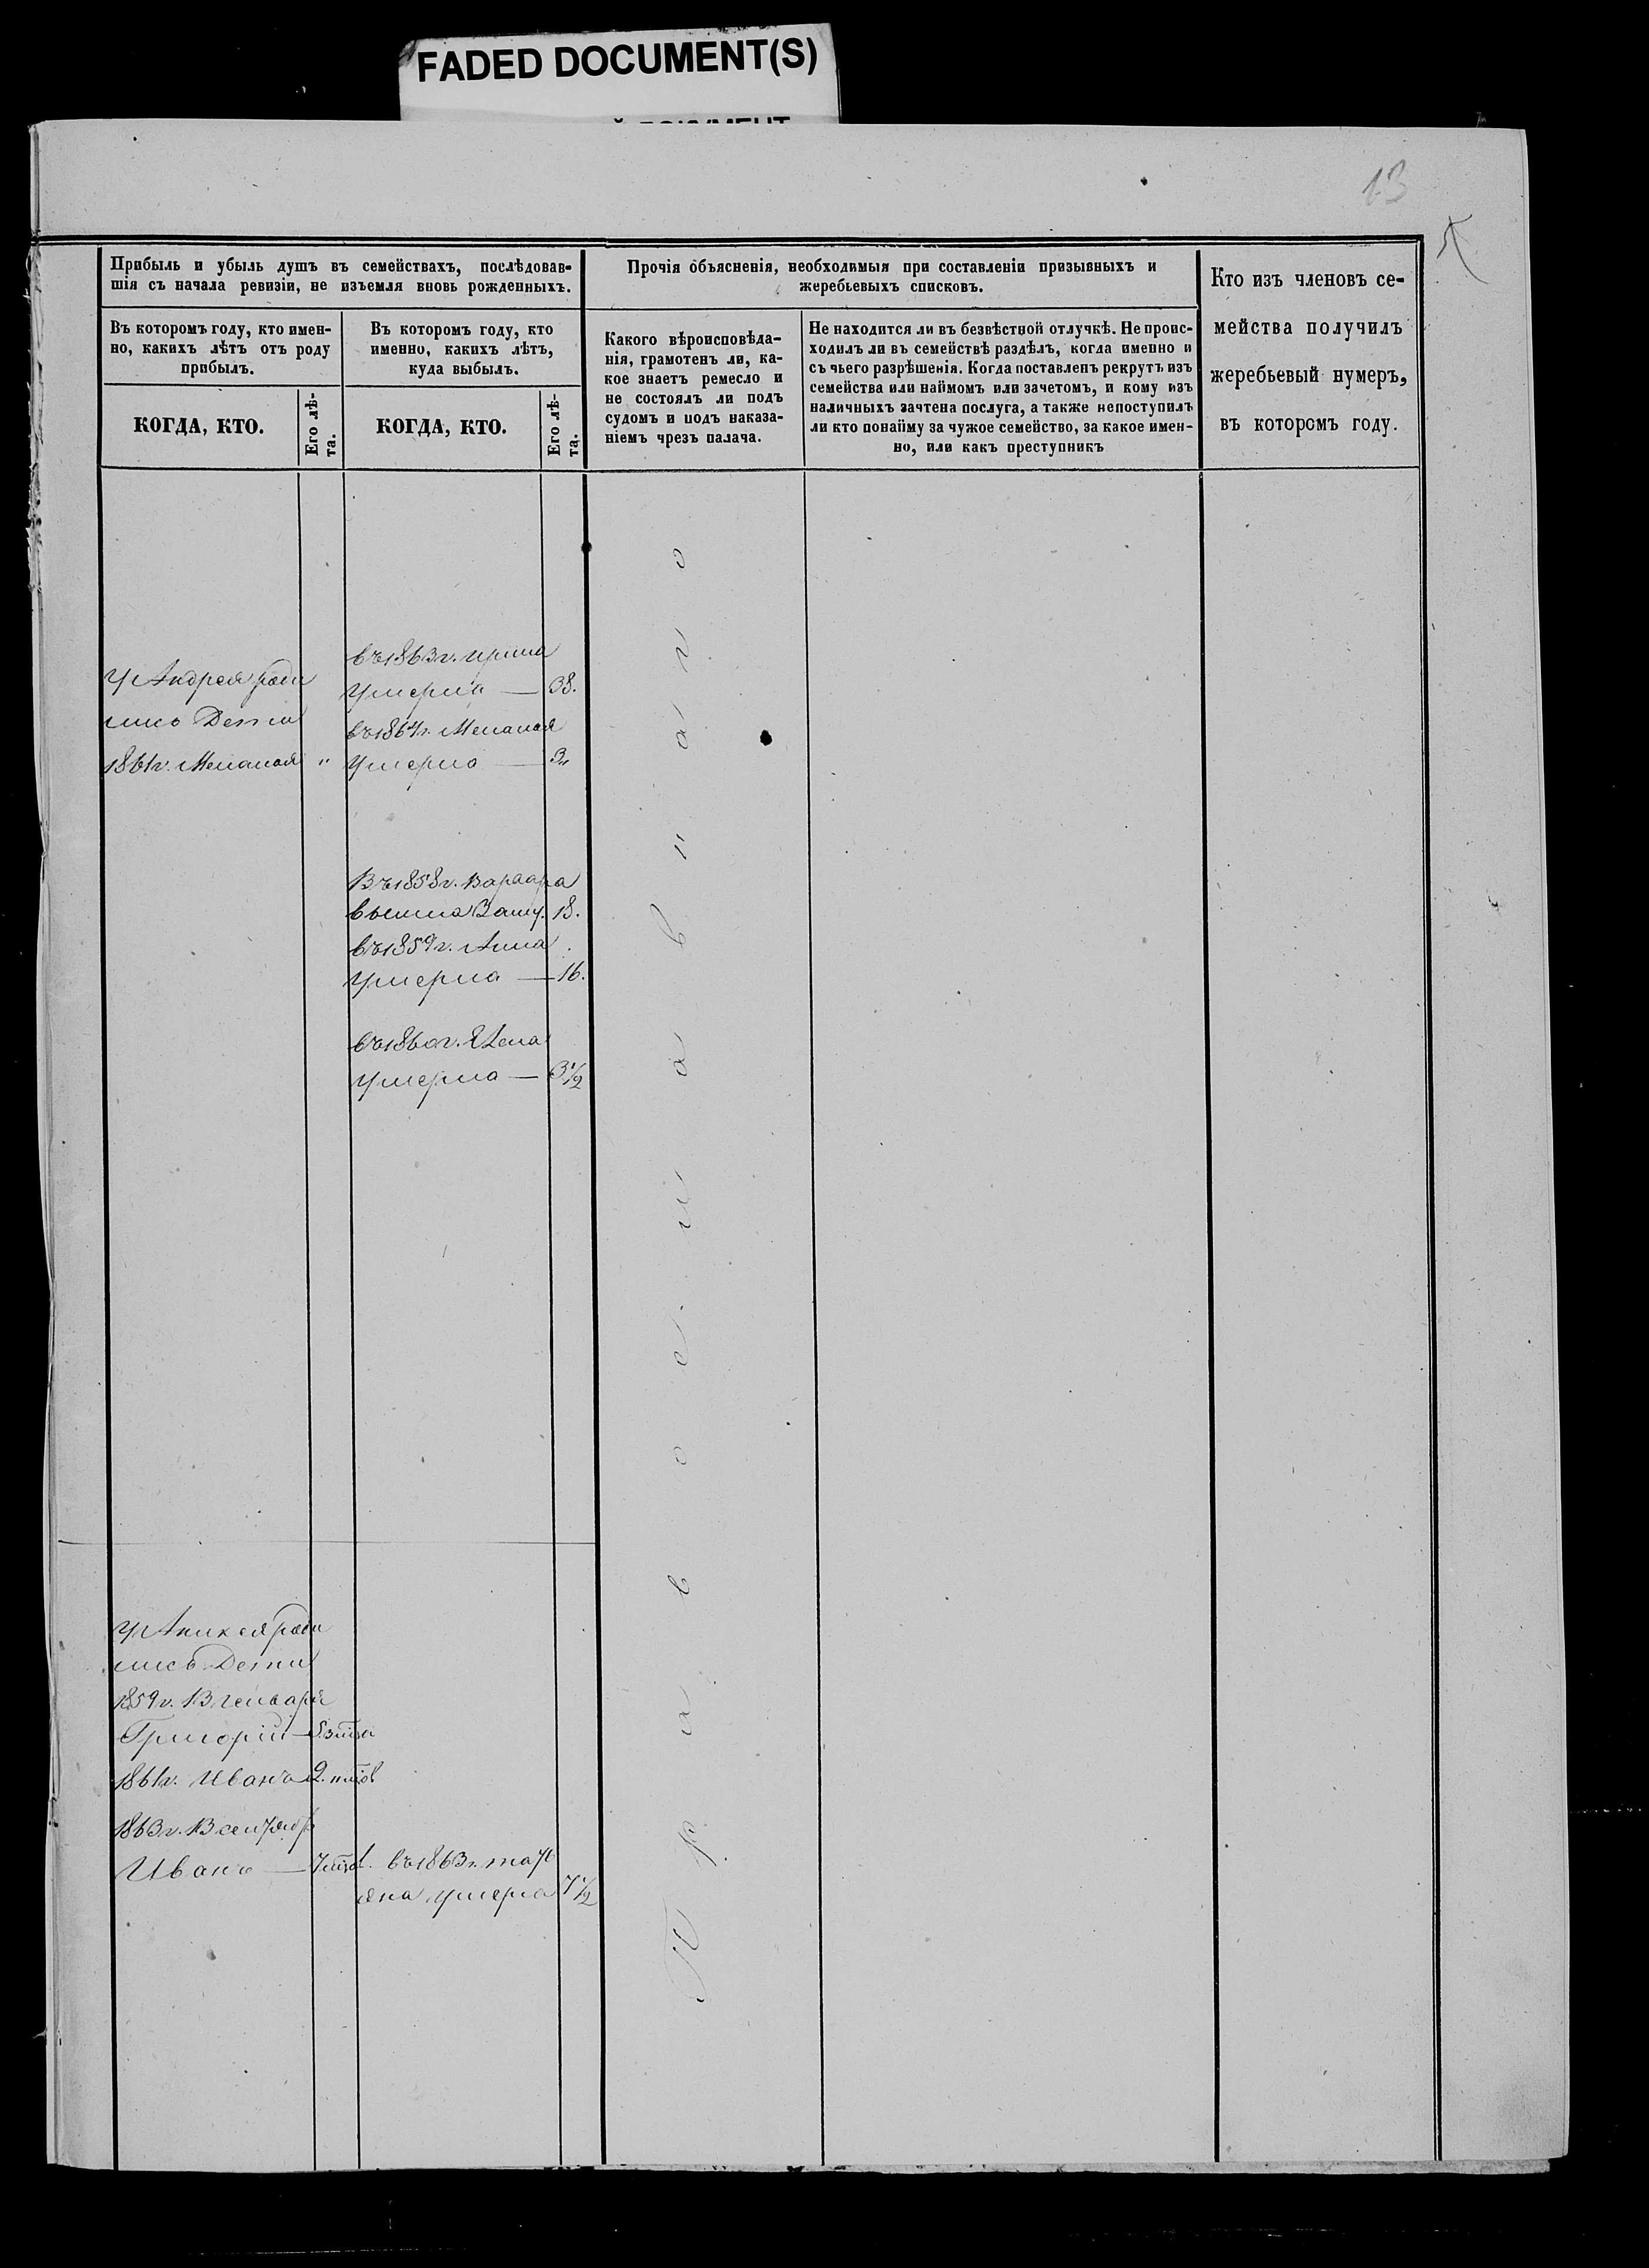 FADED DOCUMENT(S)
13
Прибыль и убыль душъ въ семействахъ, послѣдовав-
шія съ начала ревизіи, не изъемля вновь рожденныхъ.
Въ которомъ году, кто имен-
но, какихъ лѣтъ отъ роду
прибылъ.
КОГДА, КТО.
Его лѣ-
та.
Въ которомъ году, кто
именно, какихъ лѣтъ,
куда выбылъ.
КОГДА, КТО.
Его лѣ-
та.
Прочія объясненія, необходимыя при составленіи призывныхъ и
жеребьевыхъ списковъ.
Какого вѣроисповѣда-
нія, грамотенъ ли, ка-
кое знаетъ ремесло и
не состоялъ ли подъ
судомъ и подъ наказа-
ніемъ чрезъ палача.
Не находится ли въ безвѣстной отлучкѣ. Не проис-
ходилъ ли въ семействѣ раздѣлъ, когда именно и
съ чьего разрѣшенія. Когда поставленъ рекрутъ изъ
семейства или наймомъ или зачетомъ, и кому изъ
наличныхъ зачтена послуга, а также непоступилъ
ли кто понайму за чужое семейство, за какое имен-
но, или какъ преступникъ
Кто изъ членовъ се-
мейства получилъ
жеребьевый нумеръ,
въ которомъ году.
У Андрея роди
лись Дети
1861г. Меланья "
въ 1863г. Ирина
Умерла — 38.
въ 1864г. Меланья
Умерла — 3"
Въ 1858г. Варвара
вышла Зам. 18.
въ 1859г. Анна
Умерла — 16.
въ 1860г. Елена
умерла — 3 1/2
У Аникея роди
лись Дети
1859г. В Генваре
Григорій — 5
1861г. Иванъ 2.
1863г.
Иванъ — 7
въ 1863г. тать
яна умерла 7 1/2
Православнаго